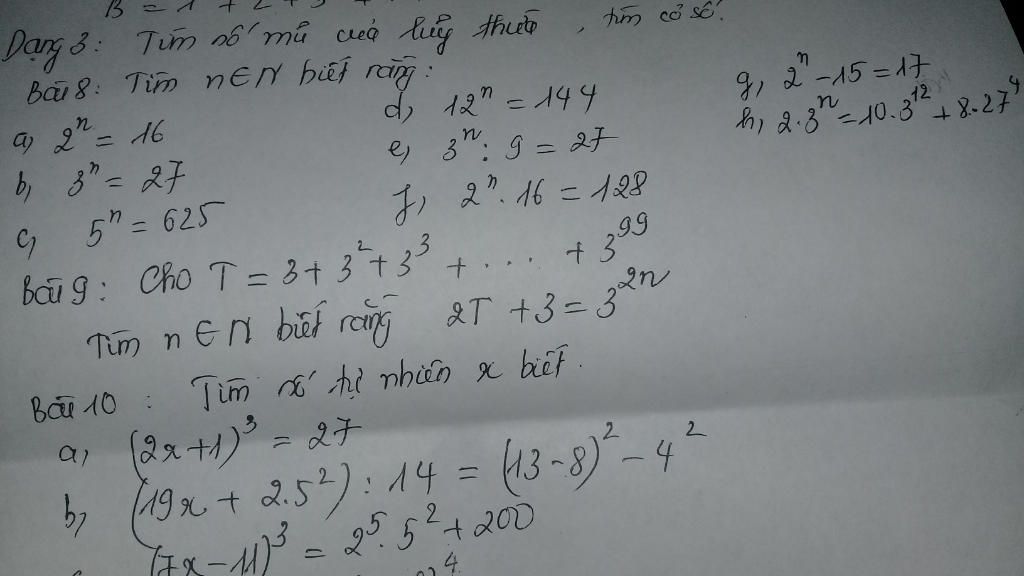 B = 1 + 2 + 3
Dạng 3: Tìm số mũ của luỹ thừa, tìm cơ số.
Bài 8: Tìm n ∈ N biết rằng:
a, 2ⁿ = 16
b, 3ⁿ = 27
c, 5ⁿ = 625
d, 12ⁿ = 144
e, 3ⁿ : 9 = 27
f, 2ⁿ . 16 = 128
g, 2ⁿ - 15 = 17
h, 2.3ⁿ = 10.3¹² + 8.27⁴
Bài 9: Cho T = 3 + 3² + 3³ + ... + 3⁹⁹
Tìm n ∈ N biết rằng 2T + 3 = 3²ⁿ
Bài 10: Tìm số tự nhiên x biết.
a, (2x+1)³ = 27
b, (19x + 2.5²) : 14 = (13-8)² - 4²
(7x-11)³ = 2⁵.5² + 200